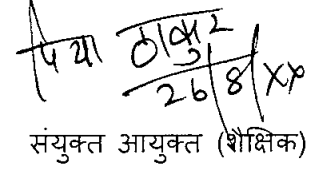 पिया ठाकुर
26/8/XX
संयुक्त आयुक्त (शैक्षिक)